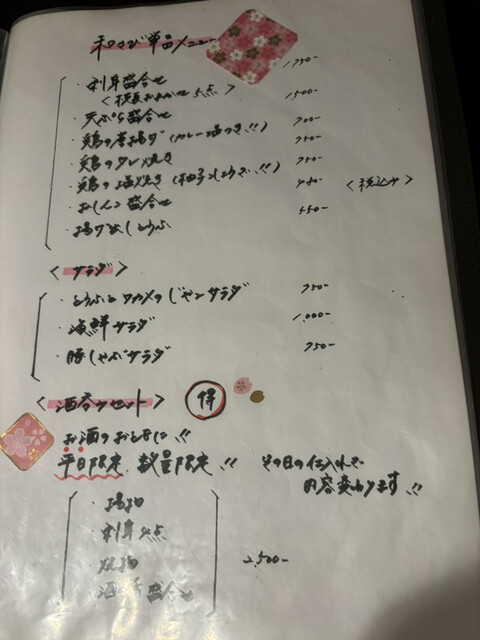 和さび単品メニュー
・刺身盛合せ 1,750-
<板長おまかせ5点>
・天ぷら盛合せ 1,500-
・鶏の唐揚げ(カレー塩つき!!) 700-
・鶏のタレ焼き 750-
・鶏の塩焼き(柚子しょうが!!) 750-
・おしんこ盛合せ 450- <税込み>
・揚げ出しとうふ 550-
<サラダ>
・とうふとワカメのじゃこサラダ 750-
・海鮮サラダ 1,000-
・豚しゃぶサラダ 750-
<酒呑みセット> 得
お酒のおともに!!
平日限定 数量限定!! その日の仕入れで
内容変わります!!
・揚物
・刺身4点
・焼物
・酒 盛合せ
2,500-